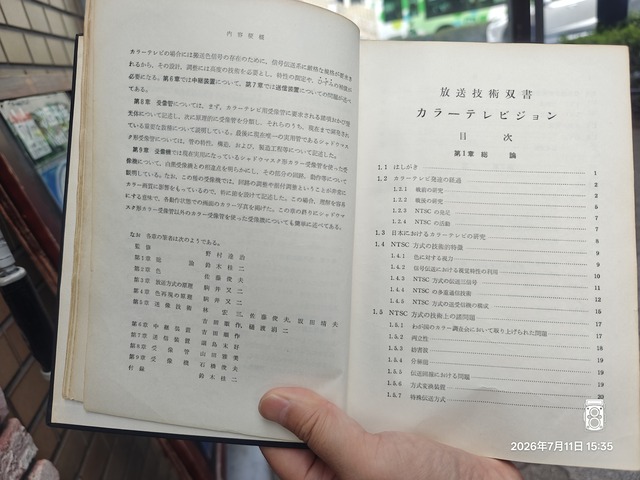 内容梗概
カラーテレビの場合には搬送色信号の存在のために，信号伝送系に厳格な規格が要求さ
れるから，その設計，調整には高度の技術を必要とし，特性の測定や，
必要になる。第6章では中継装置について，第7章では送信装置についての問題が述べ
てある。
第8章 受像管については，まず，カラーテレビ用受像管に要求される
光体について記述し，次に原理的に受像管を分類し，それらのうち，現在まで開発され
ている重要な数種について説明している。最後に現在唯一の実用管であるシャドウマス
ク形受像管については，管の特性，構造，および，製造工程等について記述した。
第9章 受像機では現在実用になっているシャドウマスク形カラー受像管を使った受
像機について，白黒受像機との相違点を明らかにし，その各部の回路，動作等について
説明している。なお，この種の受像機では，回路の調整や取付調整ということが非常に
カラー画質に影響をもっているので，特に節を設けて記述した。この場合，理解を容易
にする意味で，各動作状態での画面のカラー写真を掲げた。この章の終りにシャドウマ
スク形カラー受像管以外のカラー受像管を使った受像機についても簡単に述べてある。
なお，各章の筆者は次のようである。
監修 野村達治
第1章 総論 鈴木桂二
第2章 色 佐藤俊夫
第3章 放送方式の原理 駒井又二
第4章 色再現の原理 駒井又二
第5章 撮像技術 林宏三，佐藤俊夫，坂田晴夫
第6章 中継装置
第7章 送信装置
第8章 受像管
第9章 受像機
付録 鈴木桂二
放送技術双書
カラーテレビジョン
目次
第1章 総論
1.1 はしがき 1
1.2 カラーテレビ発達の経過 2
1.2.1 戦前の研究 2
1.2.2 戦後の研究 2
1.2.3 NTSC の発足 5
1.2.4 NTSC の活動 7
1.3 日本におけるカラーテレビの研究 8
1.4 NTSC 方式の技術的特徴 9
1.4.1 色に対する視力 9
1.4.2 信号伝送における視覚特性の利用 10
1.4.3 NTSC 方式の伝送三信号 11
1.4.4 NTSC の多重通信技術 12
1.4.5 NTSC 方式の送受信機の構成 15
1.5 NTSC 方式の技術上の諸問題 17
1.5.1 わが国のカラー調査会において取り上げられた問題 17
1.5.2 両立性
1.5.3 妨害波
1.5.4 分解能
1.5.5 伝送回線における問題
1.5.6 方式変換装置
1.5.7 特殊伝送方式
2026年7月11日 15:35